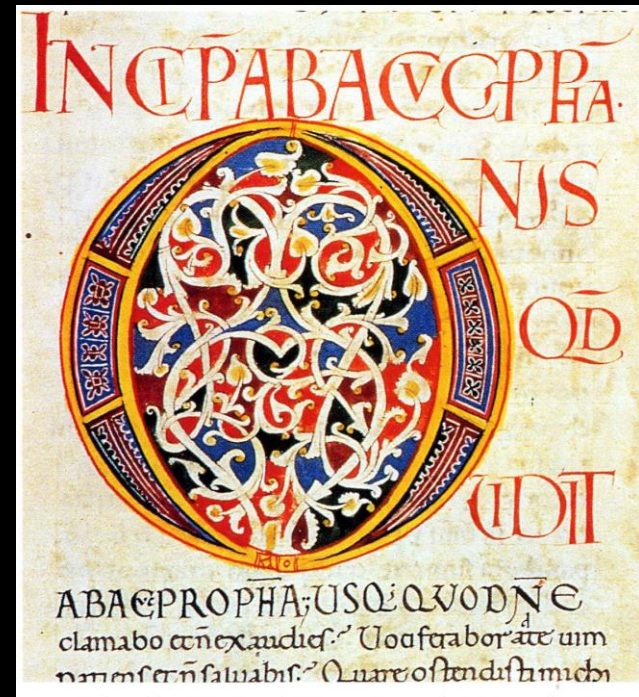 INCIP̄ ABACVC PP̄HA.
ONUS
QD̄
UIDIT
ABAC PROPH̄A; USQ; QVO DN̄E
clamabo et n̄ exaudies. Uociferabor ad te uim
patiens et n̄ saluabis. Quare ostendisti michi